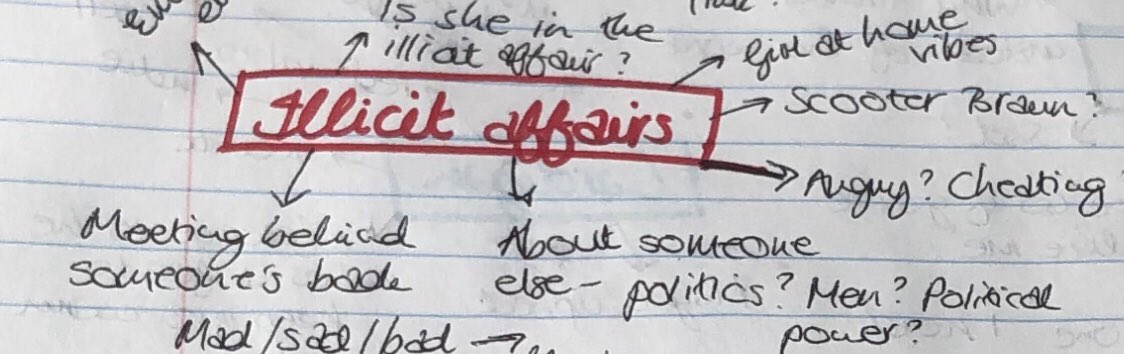 Is she in the
illicit affair?
Girl at home
vibes
Illicit affairs
Scooter Braun?
Angry? Cheating
Meeting behind
someone's back
About someone
else - politics? Men? Political
power?
Mad/sad/bad →